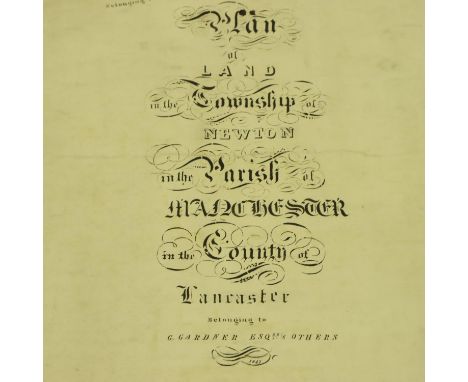 Belonging
Plan
of
LAND
in the Township of
NEWTON
in the Parish of
MANCHESTER
in the County of
Lancaster
Belonging to
G. GARDNER ESQRE & OTHERS